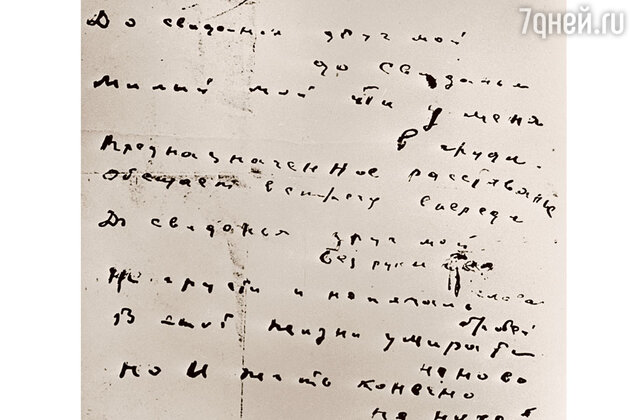 7дней.ru
До свиданья друг мой
до свиданья
Милый мой ты у меня
в груди.
Предназначенное расставанье
обещает встречу впереди
До свиданья друг мой
без руки и слова
Не грусти и не печаль
бровей
В этой жизни умирать
не ново
но и жить конечно
не